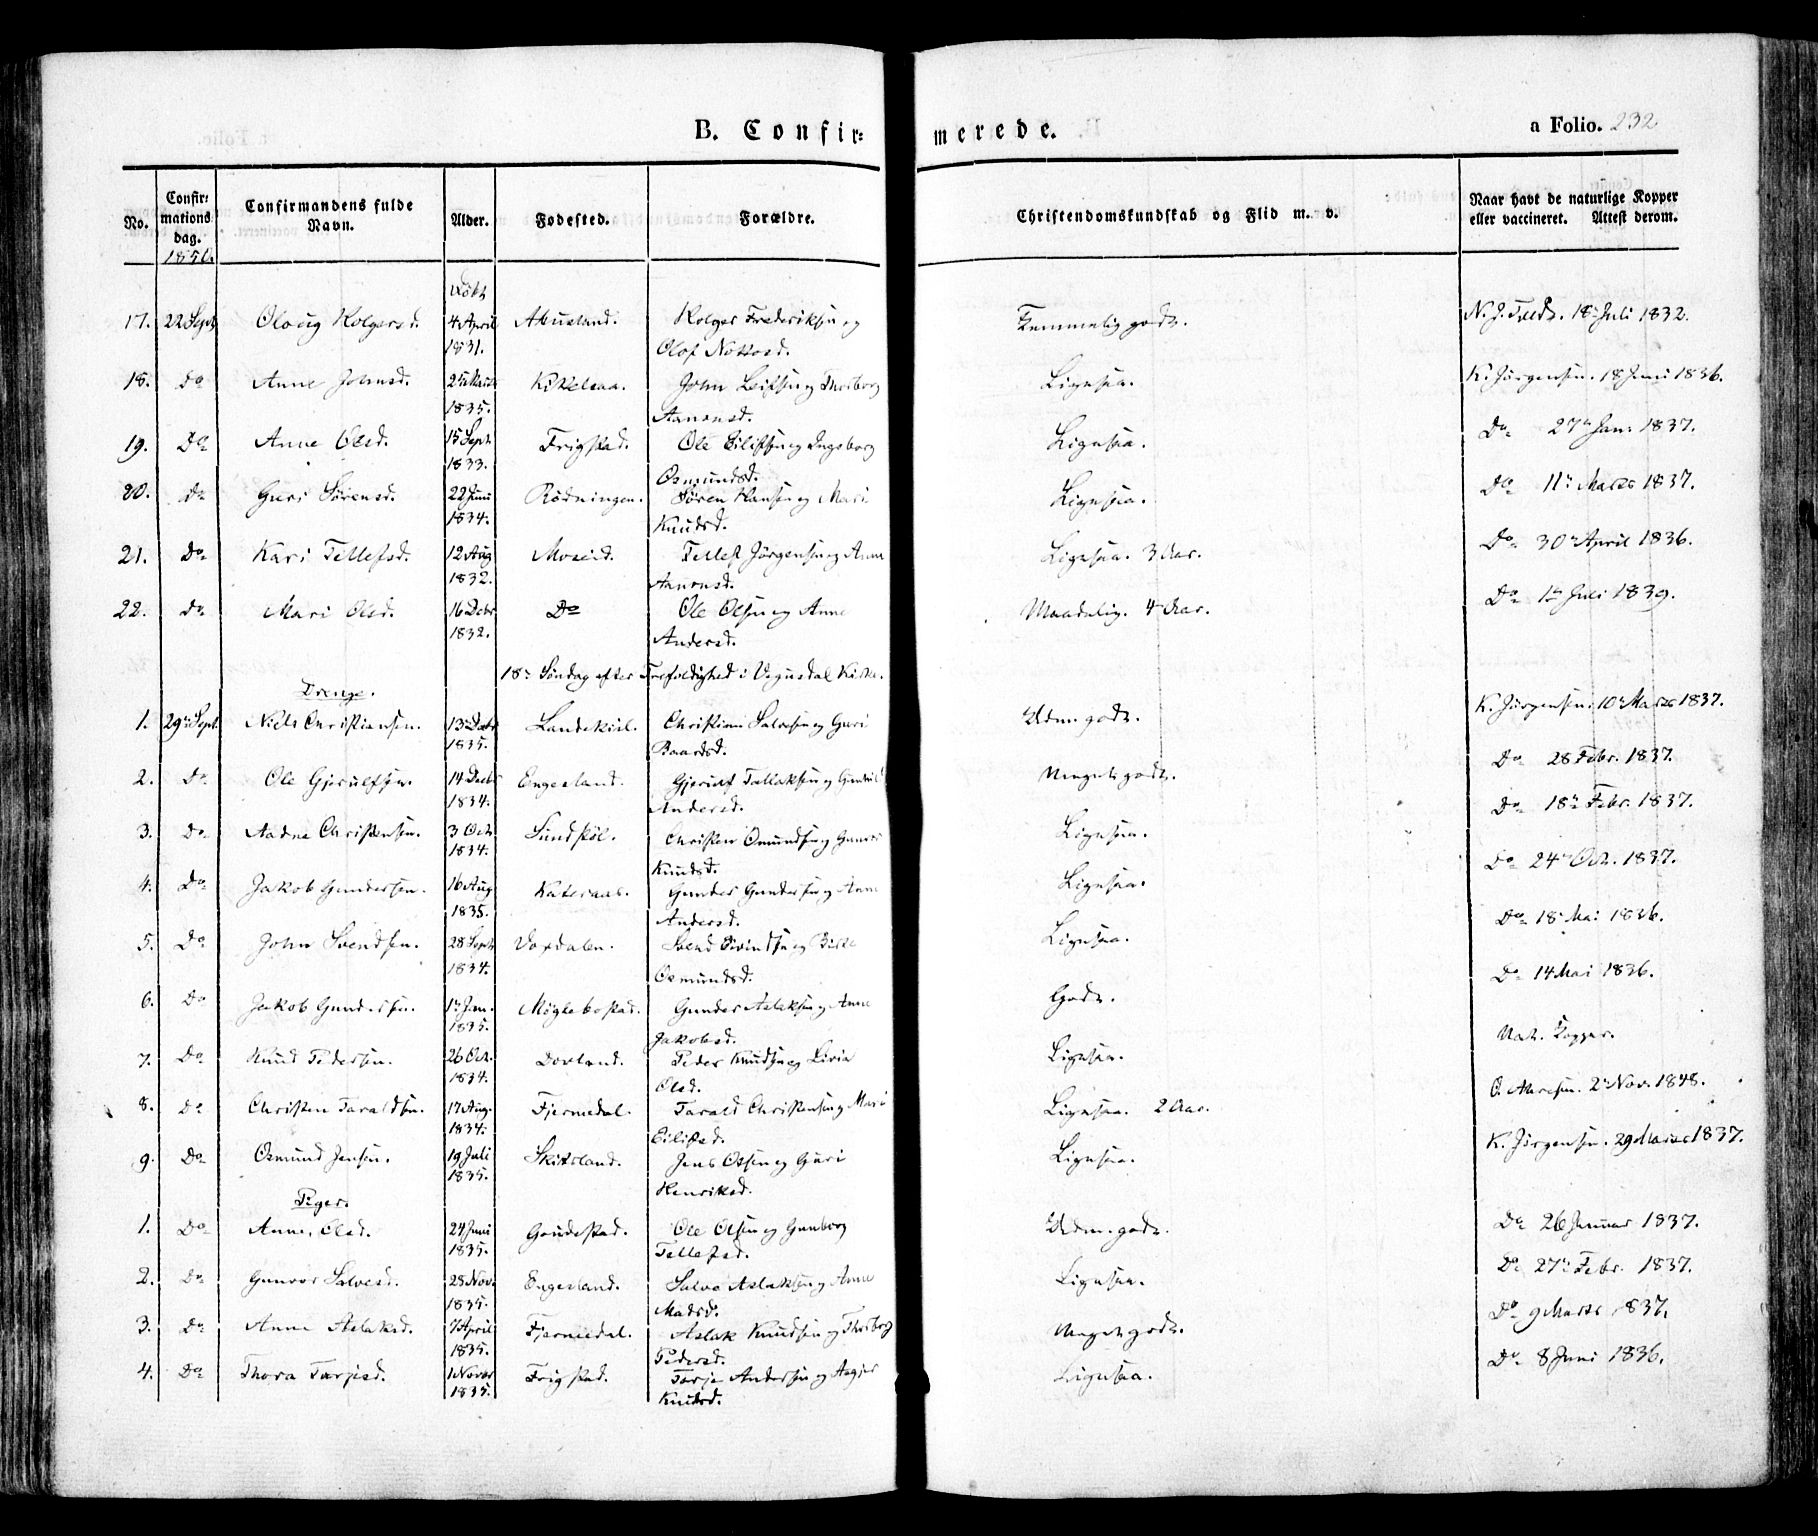 B. Confir= merede. a Folio. 232
No. Confir= mations dag. Confirmandens fulde Navn. Alder. Fødested. Forældre. Christendomskundskab og Flid m. v. Naar havt de naturlige Kopper eller vaccineret. Attest derom.
1850.
Døbt
17. 22 Sept. Oloug Holgersd. 4 April Abusland. Holger Frederiksen og Temmelig godt. N. J. Tvedt. 18 Juli 1832.
1831. Olof Nottosd.
18. Do Anne Johnsd. Kittelsaa. John Leifsen og Thorborg Ligesaa. K. Jørgensen. 18 Juni 1836.
1835. Aanonsd.
19. Do Anne Olsd. 15 Sept. Frigstad. Ole Eilifsen og Ingeborg Ligesaa. Do 27 Jan. 1837.
1833. Osmundsd.
20. Do Guri Sørensd. 22 Juni Rødningen. Søren Hansen og Mari Ligesaa. Do 11 Marts 1837.
1834. Knudsd.
21. Do Kari Tellefsd. 12 Aug Moseid. Tellef Jørgensen og Anne Ligesaa. 3 Aar. Do 30 April 1836.
1832. Aanonsd.
22. Do Mari Olsd. 16 Decbr Do Ole Olsen og Anne Maadelig. 4 Aar. Do 1 Juli 1839.
1832. Andersd.
18de Søndag efter Trefoldighed i Vegusdal Kirke.
Drenge.
1. 29 Sept. Niels Christiansen. 13 Decbr Landekiil. Christian Salvesen og Guri Udm. godt. K. Jørgensen. 10 Marts 1837.
1835. Baardsd.
2. Do Ole Gjerulfsen. 14 Decbr Engesland. Gjerulf Tellaksen og Gunhild Meget godt. Do 28 Febr. 1837.
1834. Andersd.
3. Do Aadne Christensen. 3 Oct. Sundskøl. Christen Omundsen og Gunvor Ligesaa. Do 18 Febr. 1837.
1834. Knudsd.
4. Do Jakob Gundersen. 16 Aug Kateraas. Gunder Gundersen og Anne Ligesaa. Do 24 Oct. 1837.
1835. Andersd.
5. Do John Svendsen. 28 Sept. Voxdalen. Svend Eivindsen og Birte Ligesaa. Do 18 Mai 1836.
1834. Osmundsd.
6. Do Jakob Gundersen. 1 Jan. Møglebostad. Gunder Aslaksen og Anne Godt. Do 14 Mai 1836.
1835. Jakobsd.
7. Do Knud Pedersen. 26 Oct. Dovland. Peder Knudsen og Livia Ligesaa. Nat. Kopper.
1834. Olsd.
8. Do Christen Taraldsen. 17 Aug. Fjermedal. Tarald Christensen og Mari Ligesaa. 2 Aar. 2 Nov. 1848.
1834. Eilifsd.
9. Do Osmund Jensen. 19 Juli Skitsland. Jens Olsen og Guri Ligesaa. K. Jørgensen. 29 Marts 1837.
1835. Henriksd.
Piger.
1. Do Anne Olsd. 24 Juni Goudestad. Ole Olsen og Gunborg Udm. godt. Do 26 Januar 1837.
1835. Tellefsd.
2. Do Gunvor Salvesd. 28 Nov. Engesland. Salve Aslaksen og Anne Ligesaa. Do 27 Febr. 1837.
1835. Madsd.
3. Do Anne Aslaksd. 7 April Fjermedal. Aslak Knudsen og Thorborg Meget godt. Do 9 Marts 1837.
1835. Pedersd.
4. Do Thora Terjesd. 1 Novbr Frigstad. Terje Andersen og Asgjer Ligesaa. Do 8 Juni 1836.
1835. Knudsd.